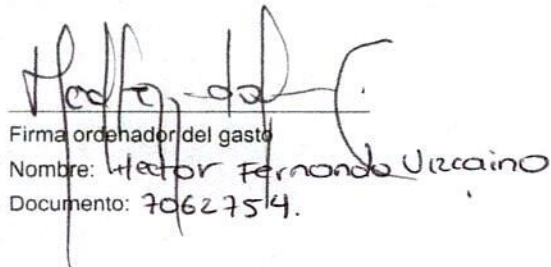 Firma ordenador del gasto
Nombre: Hector Fernando Vizcaino
Documento: 70627514.